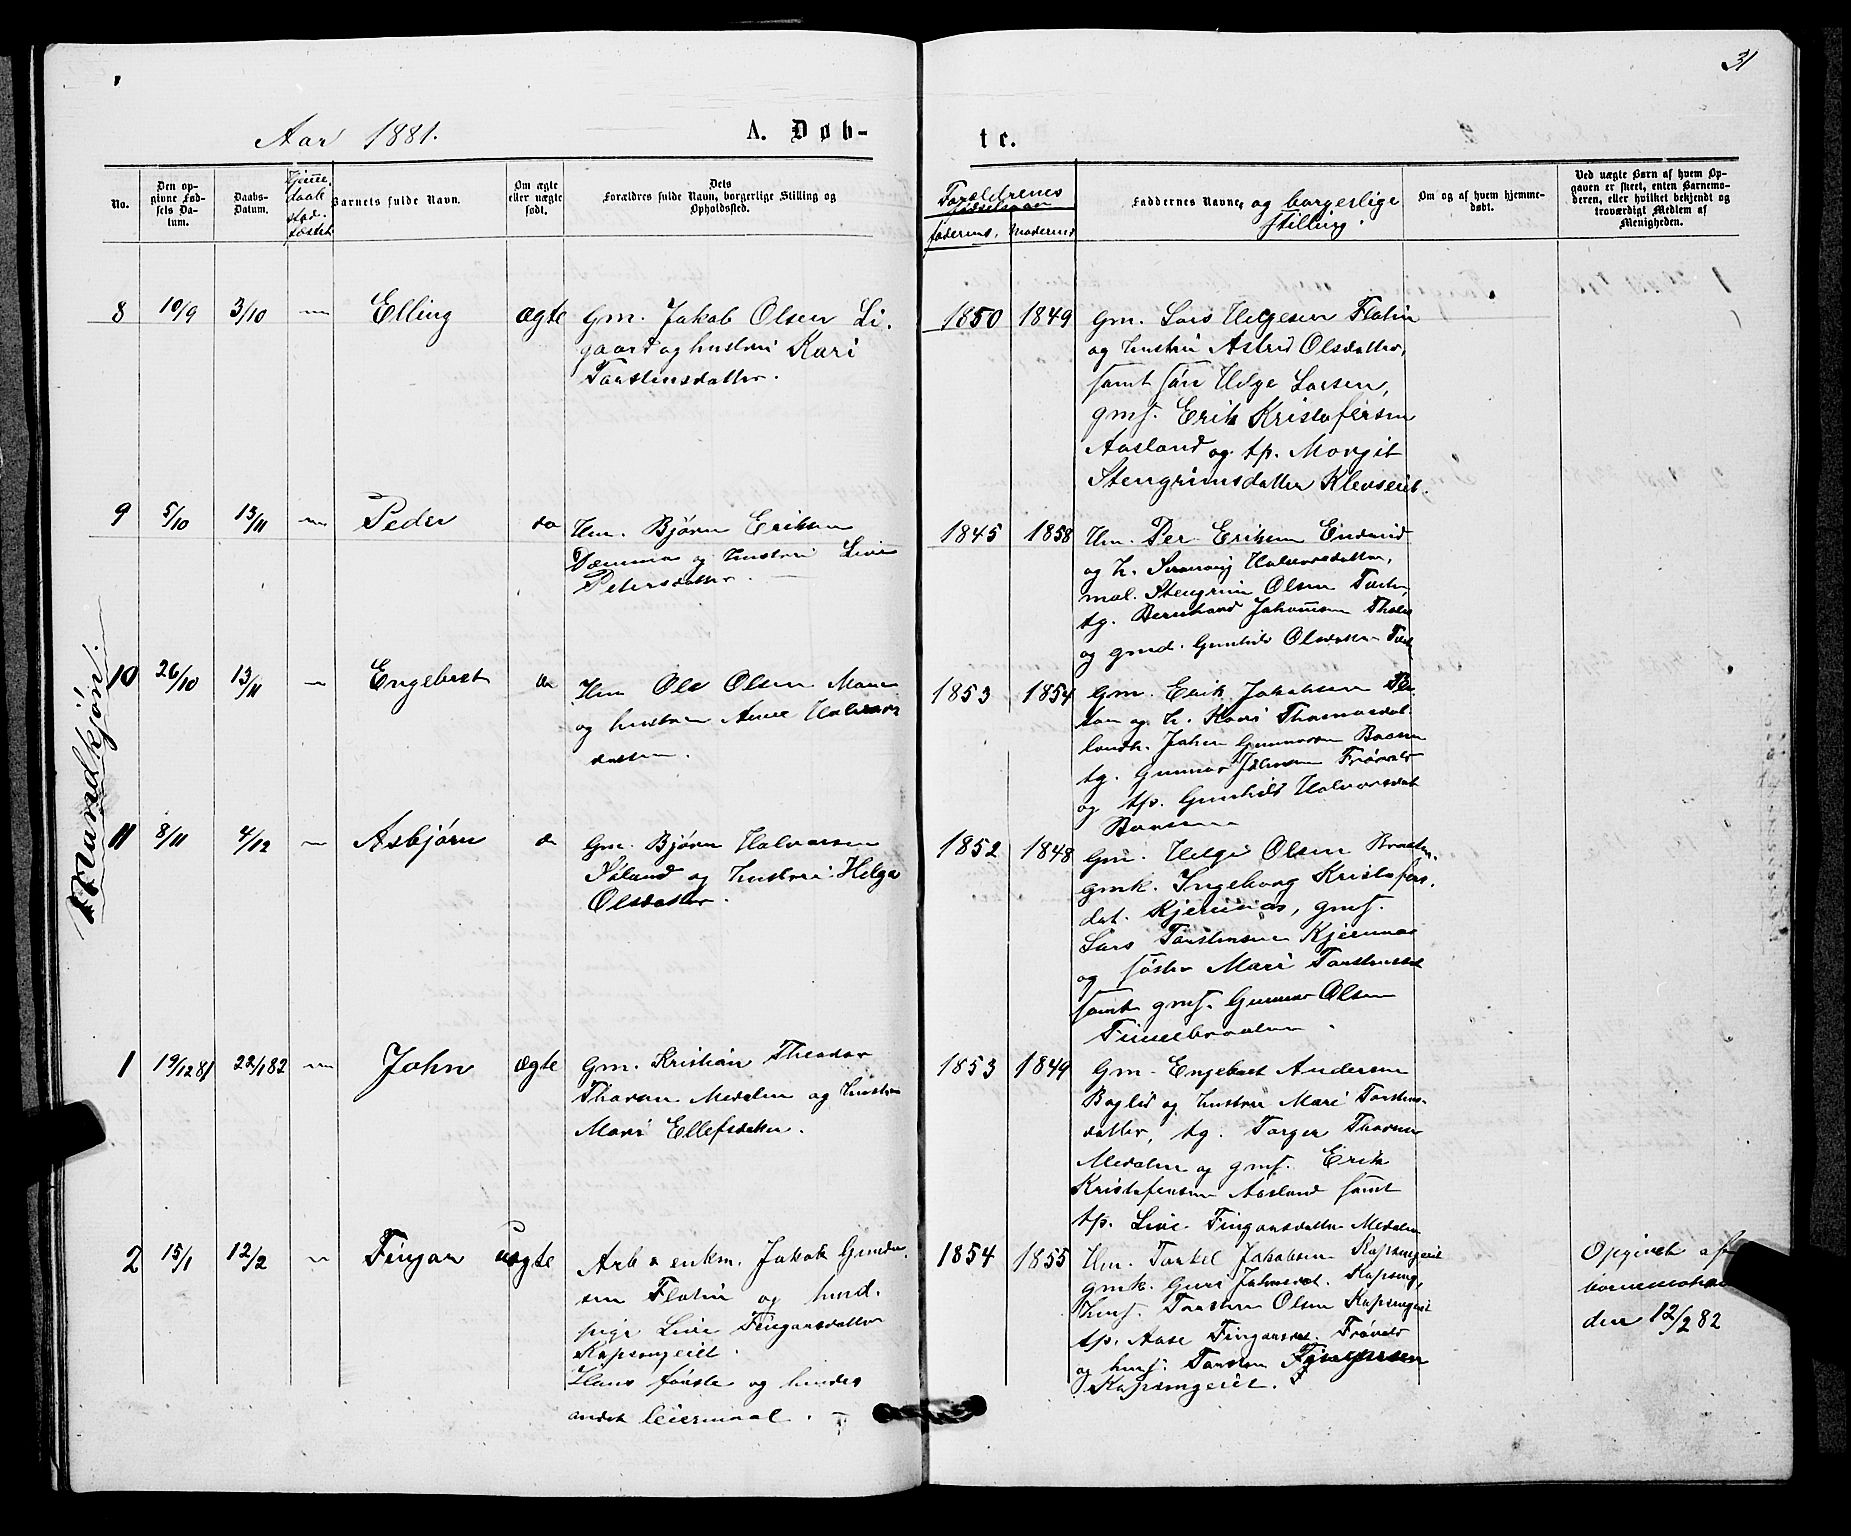 31
Aar 1881.
A. Døb-
te.
No.
Den op-
givne Fød-
sels Da-
tum.
Daabs-
Datum.
Hjemme-
daab
stad-
fæstet
Barnets fulde Navn.
Om ægte
eller uægte
født.
Dets
Forældres fulde Navn, borgerlige Stilling og
Opholdssted.
Forældrenes
fødselsaar
faderens. moderens
Faddernes Navne, og borgerlige
stilling.
Om og af hvem hjemme-
døbt.
Ved uægte Børn af hvem Op-
gaven er skeet, enten Barnemo-
deren, eller hvilket bekjendt og
troværdigt Medlem af
Menigheden.
Mandkjøn.
8 10/9 3/10 — Elling ægte
Gm. Jakob Olsen Li-
gaard og hustru Kari
Torstensdatter.
1850 1849
Gm. Lars Helgesen Flatin
og hustru Astrid Olsdatter,
samt søn Helge Larsen,
gmf. Erik Kristofersen
Aasland og tp. Margit
Stengrimsdatter Klevseiet.
9 5/10 13/11 — Peder do
Hm. Bjørn Eriksen
Dæmma og hustru Live
Petersdatter.
1845 1858
Hm. Per Eriksen
og h. Halvorsdatter,
mal. Stengrim Olsen
tg. Bernhard
og gmd. Gunhild Olsdatter
10 26/10 13/11 — Engebret do
Hm Ole Olsen
og hustru Anne Halvors
datter.
1853 1854
Gm. Erik Jakobsen
og h. Kari Thomasdat.
landh. Johan Gunnarsen
tg. Gunnar Johnsen Frøvold
og tp. Gunhild Halvorsdat
11 8/11 4/12 — Asbjørn do
Gm. Bjørn Halvorsen
Nøland og hustru Helga
Olsdatter.
1852 1848
Gm. Helge Olsen Braaten,
gmk. Ingeborg Kristofers-
dat. Kjernaas, gmf.
Lars Torstensen Kjernaas
og søster Mari Torstensdat
samt gmf. Gunnar Olsen
1 19/12 81 22/1 82 — John ægte
Gm. Kristian Theodor
Thoran Medalen og hustru
Mari Ellefsdatter.
1853 1849
Gm. Engebret Andersen
Boglid og hustru Mari Torstens-
datter, tg. Torger Thoran
Medalen og gmf. Erik
Kristofersen Aasland samt
tp. Live Fingarsdatter Medalen
2 15/1 12/2 — Fingar uægte
Arb & enkm. Jakob Gunder-
sen Flatin og husd.
pige Live Fingarsdatter
Kapsengeiet.
Hans første og hendes
andet leiermaal.
1854 1855
Hm. Torkel Jakobsen Kapsengeiet
gmk. Guri Johnsdat. Kapseng,
hmf. Torsten Olsen Kapsengeiet
tp. Aase Fingarsdat. Frøvold
og hmf. Torsten Fingarsen
Kapsengeiet.
Opgivet af
barnemoderen
den 12/2 82